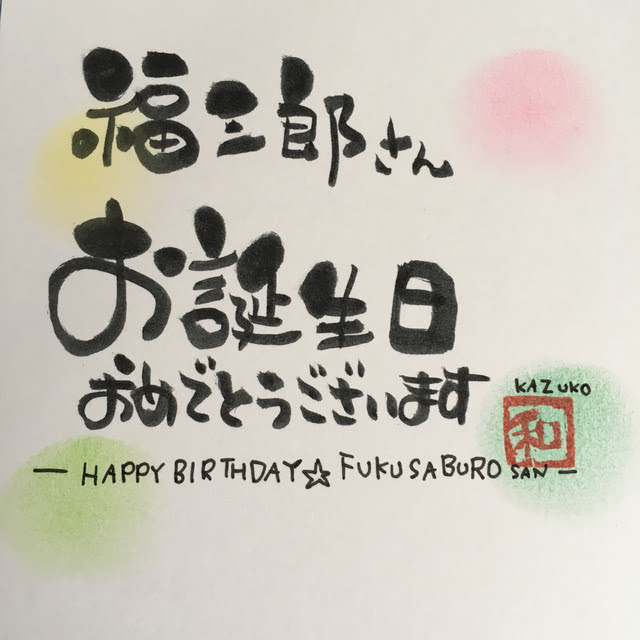 福三郎さん
お誕生日
おめでとうございます
KAZUKO
和
— HAPPY BIRTHDAY☆FUKUSABURO SAN —